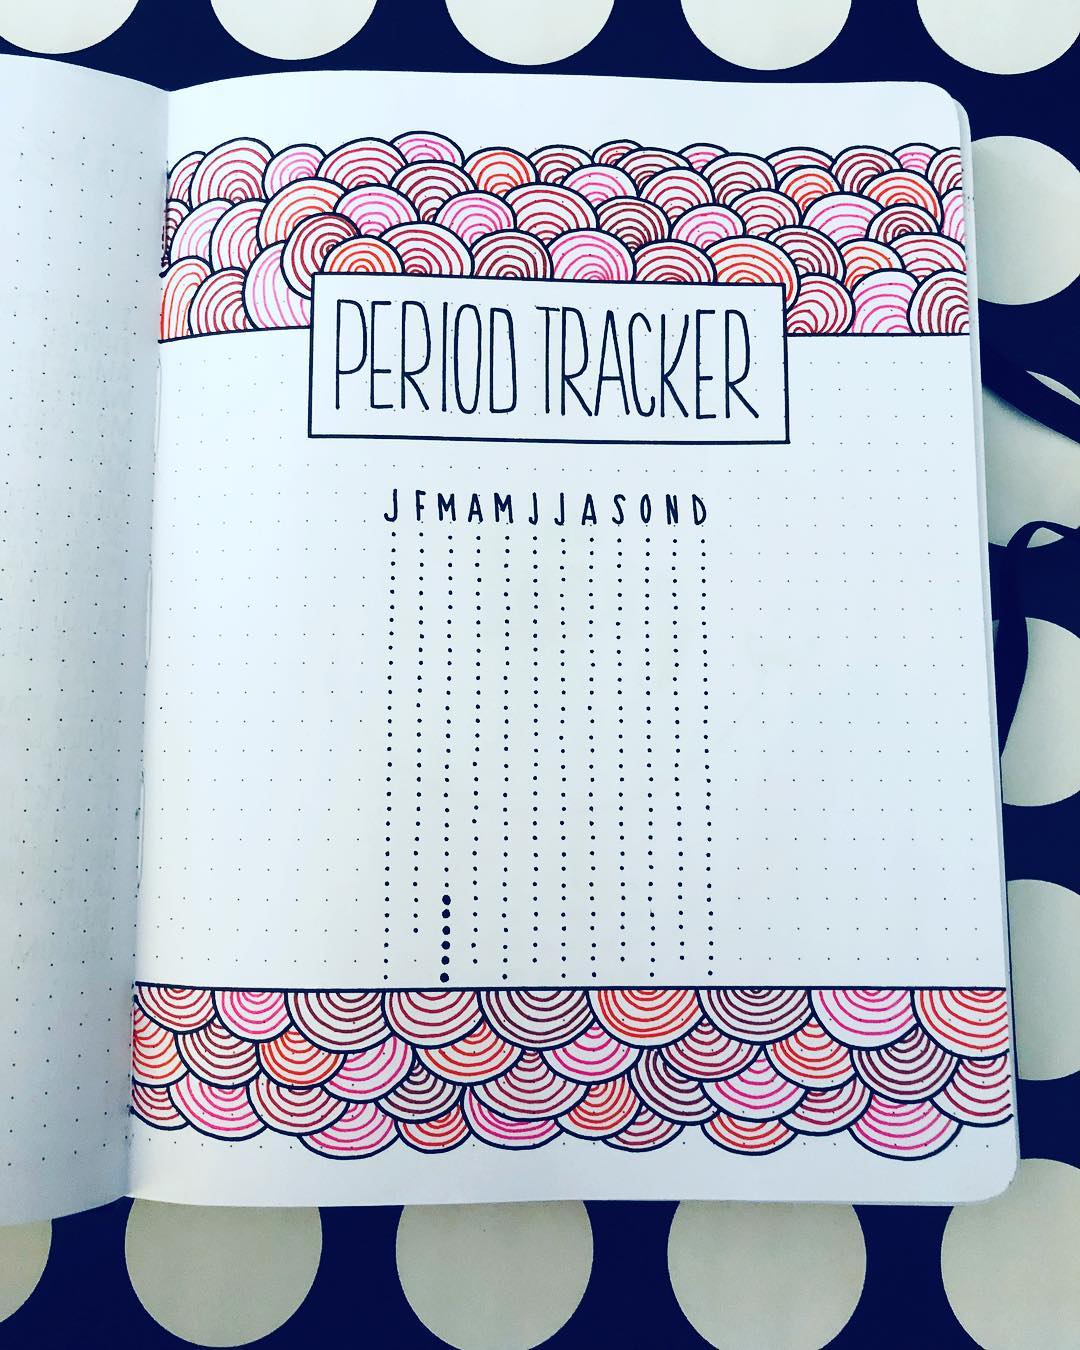 PERIOD TRACKER
J F M A M J J A S O N D